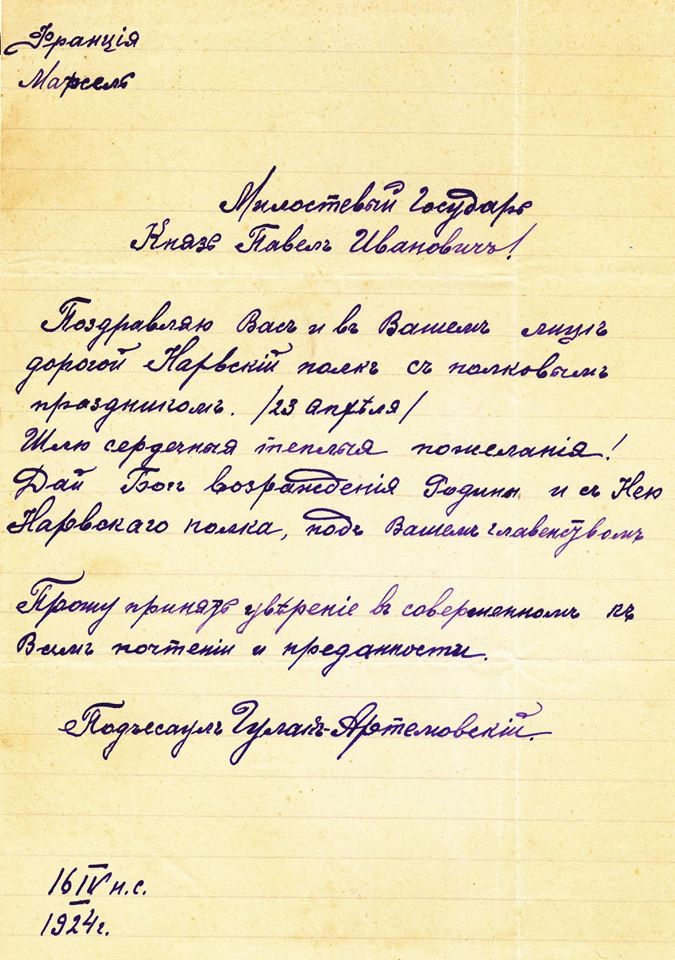 Франція
Марсель
Милостевый Государь
Князь Павелъ Ивановичъ!
Поздравляю Васъ и въ Вашемъ лицѣ
дорогой Нарвскій полкъ съ полковымъ
праздникомъ. /23 апрѣля/
Шлю сердечныя теплыя пожеланія!
Дай Богъ возраждения Родины и съ Нею
Нарвскаго полка, подъ Вашемъ главенствомъ
Прошу принять увѣреніе въ совершенномъ къ
Вамъ почтеніи и преданности.
Подъесаулъ Гулакъ-Артемовскій.
16 IV н.с.
1924г.